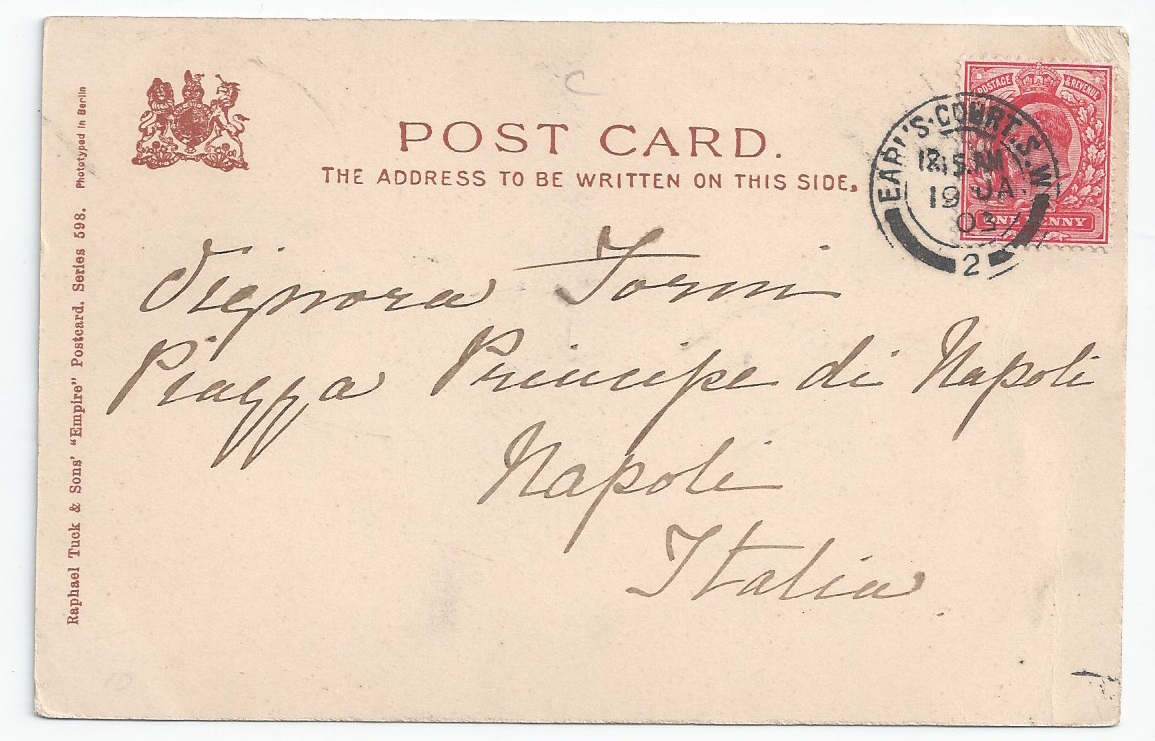 POST CARD.
THE ADDRESS TO BE WRITTEN ON THIS SIDE.
POSTAGE & REVENUE
ONE PENNY
EARL'S·COURT.S.W
12.15 AM
19 JA.
03
2
Signora Torni
Piazza Principe di Napoli
Napoli
Italia
Raphael Tuck & Sons' "Empire" Postcard. Series 598.
Phototyped in Berlin